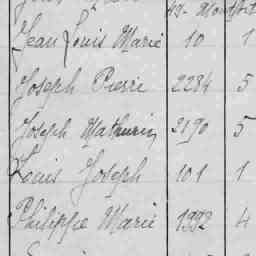 Jean Louis Marie 10 1
Joseph Pierre 2284 5
Joseph Mathurin 2190 5
Louis Joseph 101 1
Philippe Marie 1992 4